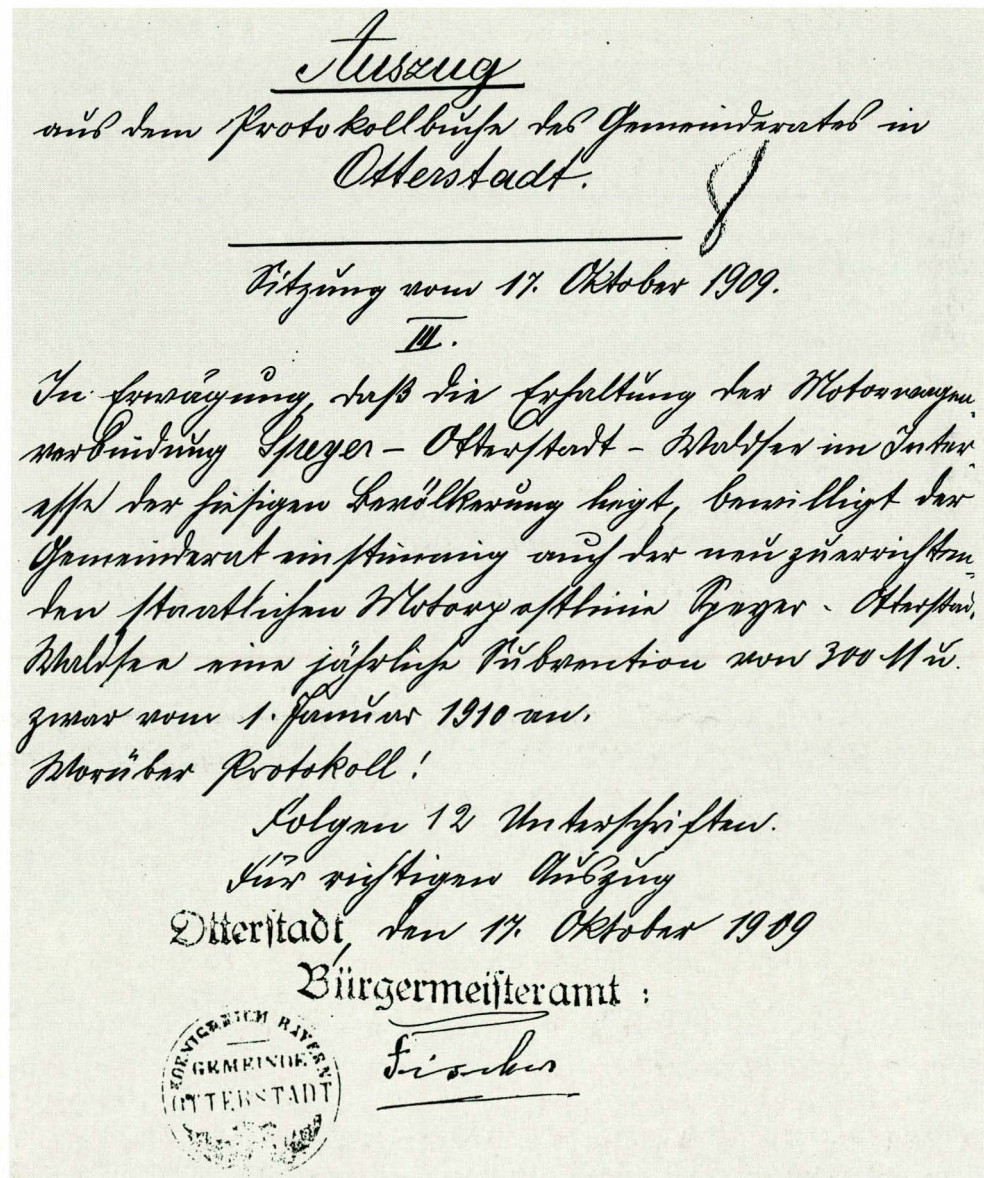 Auszug
aus dem Protokollbuche des Gemeinderates in
Otterstadt.
8
Sitzung vom 17. Oktober 1909.
III.
In Erwägung, daß die Erhaltung der Motorwagen-
verbindung Speyer – Otterstadt – Waldsee im Inter-
esse der hiesigen Bevölkerung liegt, bewilligt der
Gemeinderat einstimmig auch der neu zu errichten-
den staatlichen Motorpostlinie Speyer - Otterstad.
Waldsee eine jährliche Subvention von 300 M u.
zwar vom 1. Januar 1910 an.
Worüber Protokoll!
Folgen 12 Unterschriften.
Für richtigen Auszug
Otterstadt, den 17. Oktober 1909
Bürgermeisteramt:
Fischer
KOENIGREICH BAYERN
GEMEINDE
OTTERSTADT